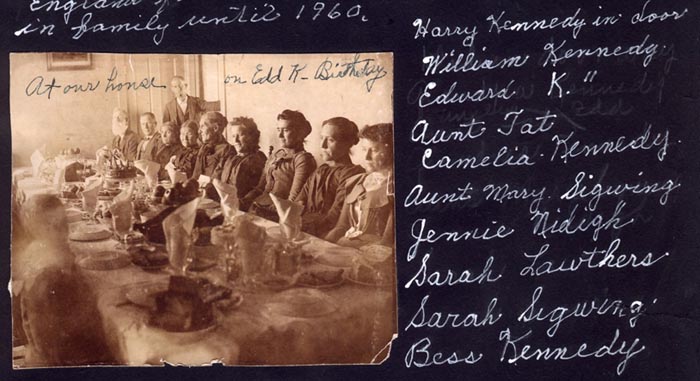 England
in family until 1960.
At our house on Edd K- Birthday
Harry Kennedy in door
William Kennedy.
Edward K. "
Aunt Tat
Camelia Kennedy.
Aunt Mary Sigwing
Jennie Nidigh
Sarah Lawthers
Sarah Sigwing
Bess Kennedy